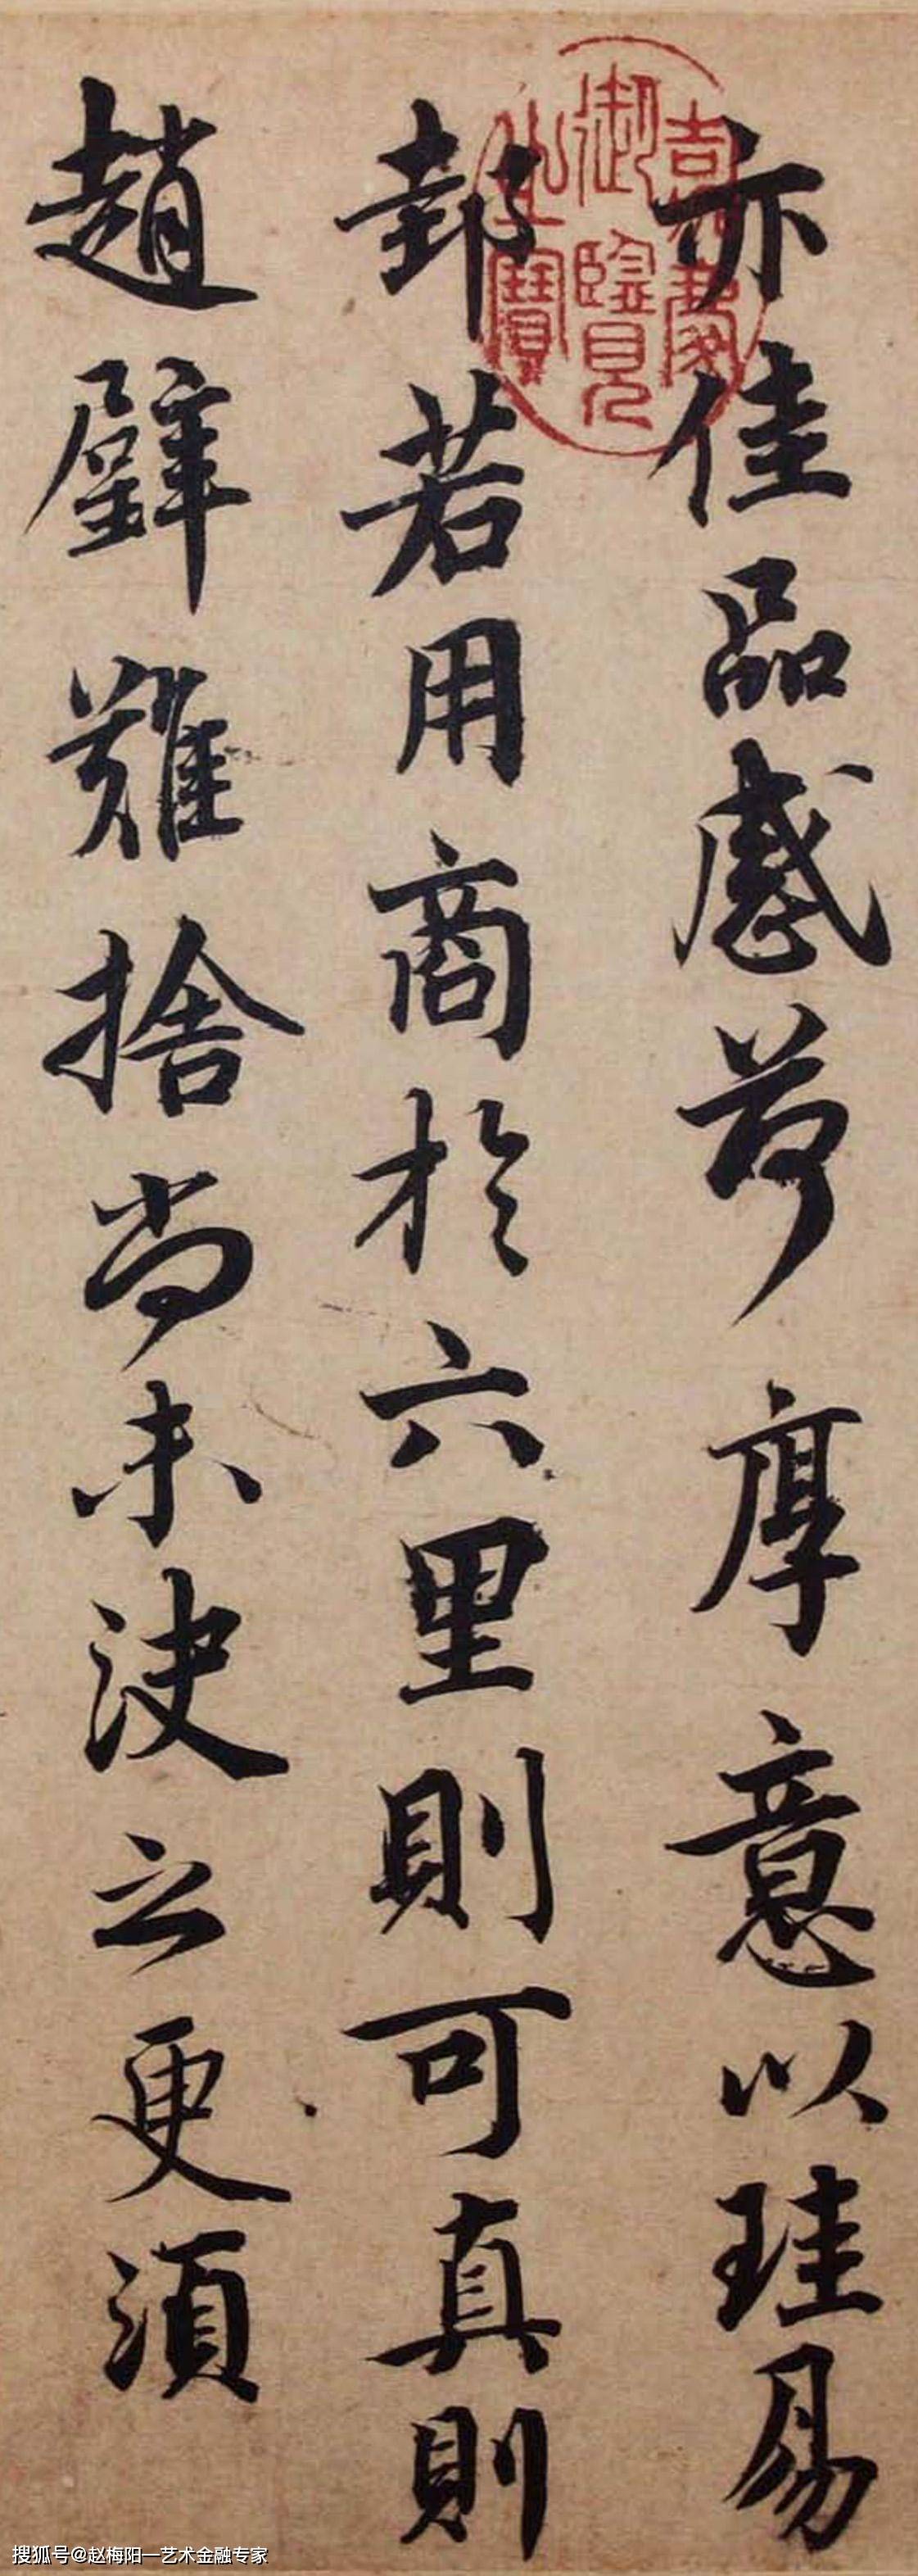 亦佳品感荷厚意以珪易
邽若用商於六里則可真則
趙璧難捨尚未決之更須
嘉慶
御覽
之寶
搜狐号@赵梅阳—艺术金融专家